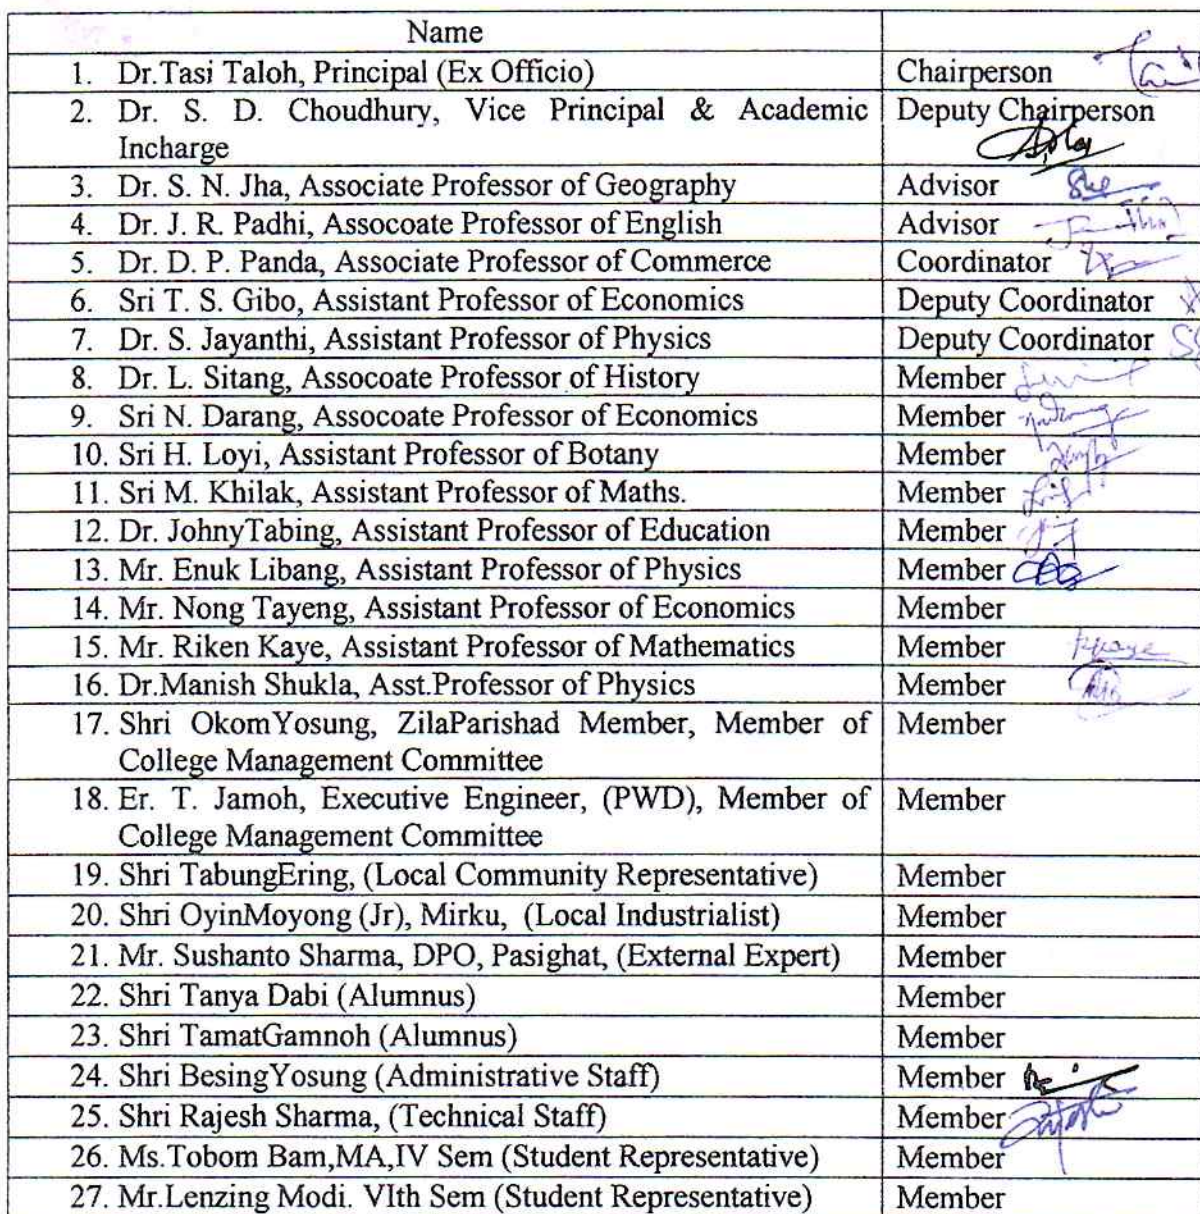 Name
1. Dr.Tasi Taloh, Principal (Ex Officio) Chairperson
2. Dr. S. D. Choudhury, Vice Principal & Academic Deputy Chairperson
Incharge
3. Dr. S. N. Jha, Associate Professor of Geography Advisor
4. Dr. J. R. Padhi, Assocoate Professor of English Advisor
5. Dr. D. P. Panda, Associate Professor of Commerce Coordinator
6. Sri T. S. Gibo, Assistant Professor of Economics Deputy Coordinator
7. Dr. S. Jayanthi, Assistant Professor of Physics Deputy Coordinator
8. Dr. L. Sitang, Assocoate Professor of History Member
9. Sri N. Darang, Assocoate Professor of Economics Member
10. Sri H. Loyi, Assistant Professor of Botany Member
11. Sri M. Khilak, Assistant Professor of Maths. Member
12. Dr. JohnyTabing, Assistant Professor of Education Member
13. Mr. Enuk Libang, Assistant Professor of Physics Member
14. Mr. Nong Tayeng, Assistant Professor of Economics Member
15. Mr. Riken Kaye, Assistant Professor of Mathematics Member
16. Dr.Manish Shukla, Asst.Professor of Physics Member
17. Shri OkomYosung, ZilaParishad Member, Member of Member
College Management Committee
18. Er. T. Jamoh, Executive Engineer, (PWD), Member of Member
College Management Committee
19. Shri TabungEring, (Local Community Representative) Member
20. Shri OyinMoyong (Jr), Mirku, (Local Industrialist) Member
21. Mr. Sushanto Sharma, DPO, Pasighat, (External Expert) Member
22. Shri Tanya Dabi (Alumnus) Member
23. Shri TamatGamnoh (Alumnus) Member
24. Shri BesingYosung (Administrative Staff) Member
25. Shri Rajesh Sharma, (Technical Staff) Member
26. Ms.Tobom Bam,MA,IV Sem (Student Representative) Member
27. Mr.Lenzing Modi. VIth Sem (Student Representative) Member